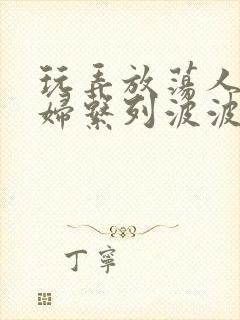 玩弄放蕩人
婦繫列波波
丁寧